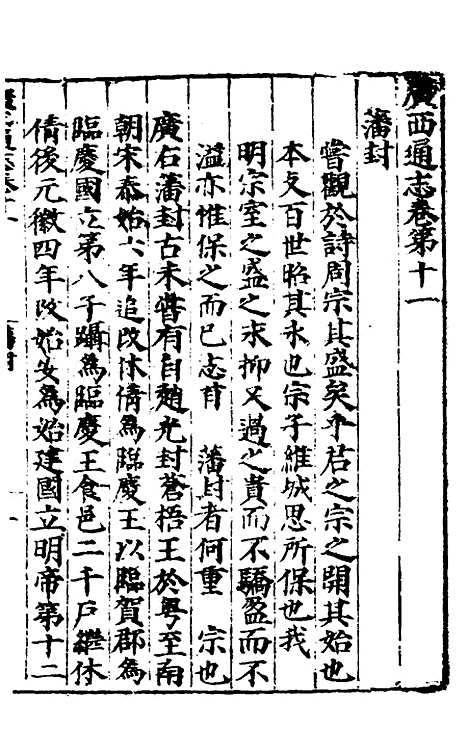 廣西通志卷第十一
藩封
嘗觀於詩周宗其盛矣乎君之宗之開其始也
本支百世昭其永也宗子維城思所保也我
明宗室之盛之求抑又過之貴而不驕盈而不
溢亦惟保之而已志首 藩封者何重 宗也
廣右藩封古未嘗有自趙光封蒼梧王於粵至南
朝宋泰始六年追改休倩為臨慶王以臨賀郡為
臨慶國立第八子躡為臨慶王食邑二千戶繼休
倩後元徽四年改始安為始建國立明帝第十二